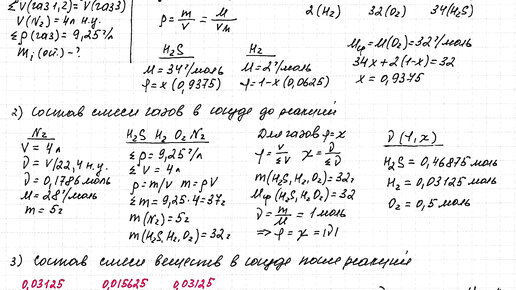 ΣV(газ1,2)=V(газ3)
V(N₂)=4л н.у.
Σρ(газ)=9,25г/л
mᵢ(ост.)-?
ρ = m/V = M/Vm
2(H₂) 32(O₂) 34(H₂S)
H₂S H₂
M=34г/моль M=2г/моль
φ=x(0,9375) φ=1-x(0,0625)
Mср=M(O₂)=32г/моль
34x+2(1-x)=32
x=0,9375
2) состав смеси газов в сосуде до реакций
N₂
V=4л
ν=V/22,4 н.у.
ν=0,1786моль
M=28г/моль
m=5г
H₂S H₂ O₂ N₂
Σρ=9,25г/л
ΣV=4л
ρ=m/V m=ρV
Σm=9,25·4=37г
m(N₂)=5г
m(H₂S,H₂,O₂)=32г
Для газов φ=χ
φ=V/ΣV χ=ν/Σν
m(H₂S,H₂,O₂)=32г
Mср(H₂S,H₂,O₂)=32
ν=m/M=1моль
⇒ φ=χ=|ν|
ν(φ,χ)
H₂S=0,46875моль
H₂=0,03125моль
O₂=0,5моль
3) состав смеси веществ в сосуде после реакций
0,03125 0,015625 0,03125